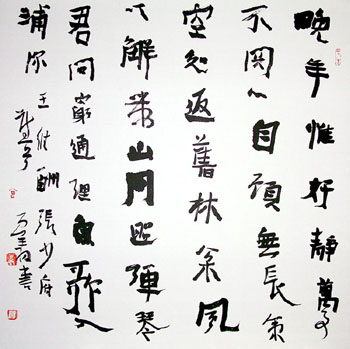 晚年惟好靜萬事
不関心自顧無長策
空知返舊林松風
吹解帶山月照彈琴
君問窮通理漁歌入
浦深 王維酬張少府
書